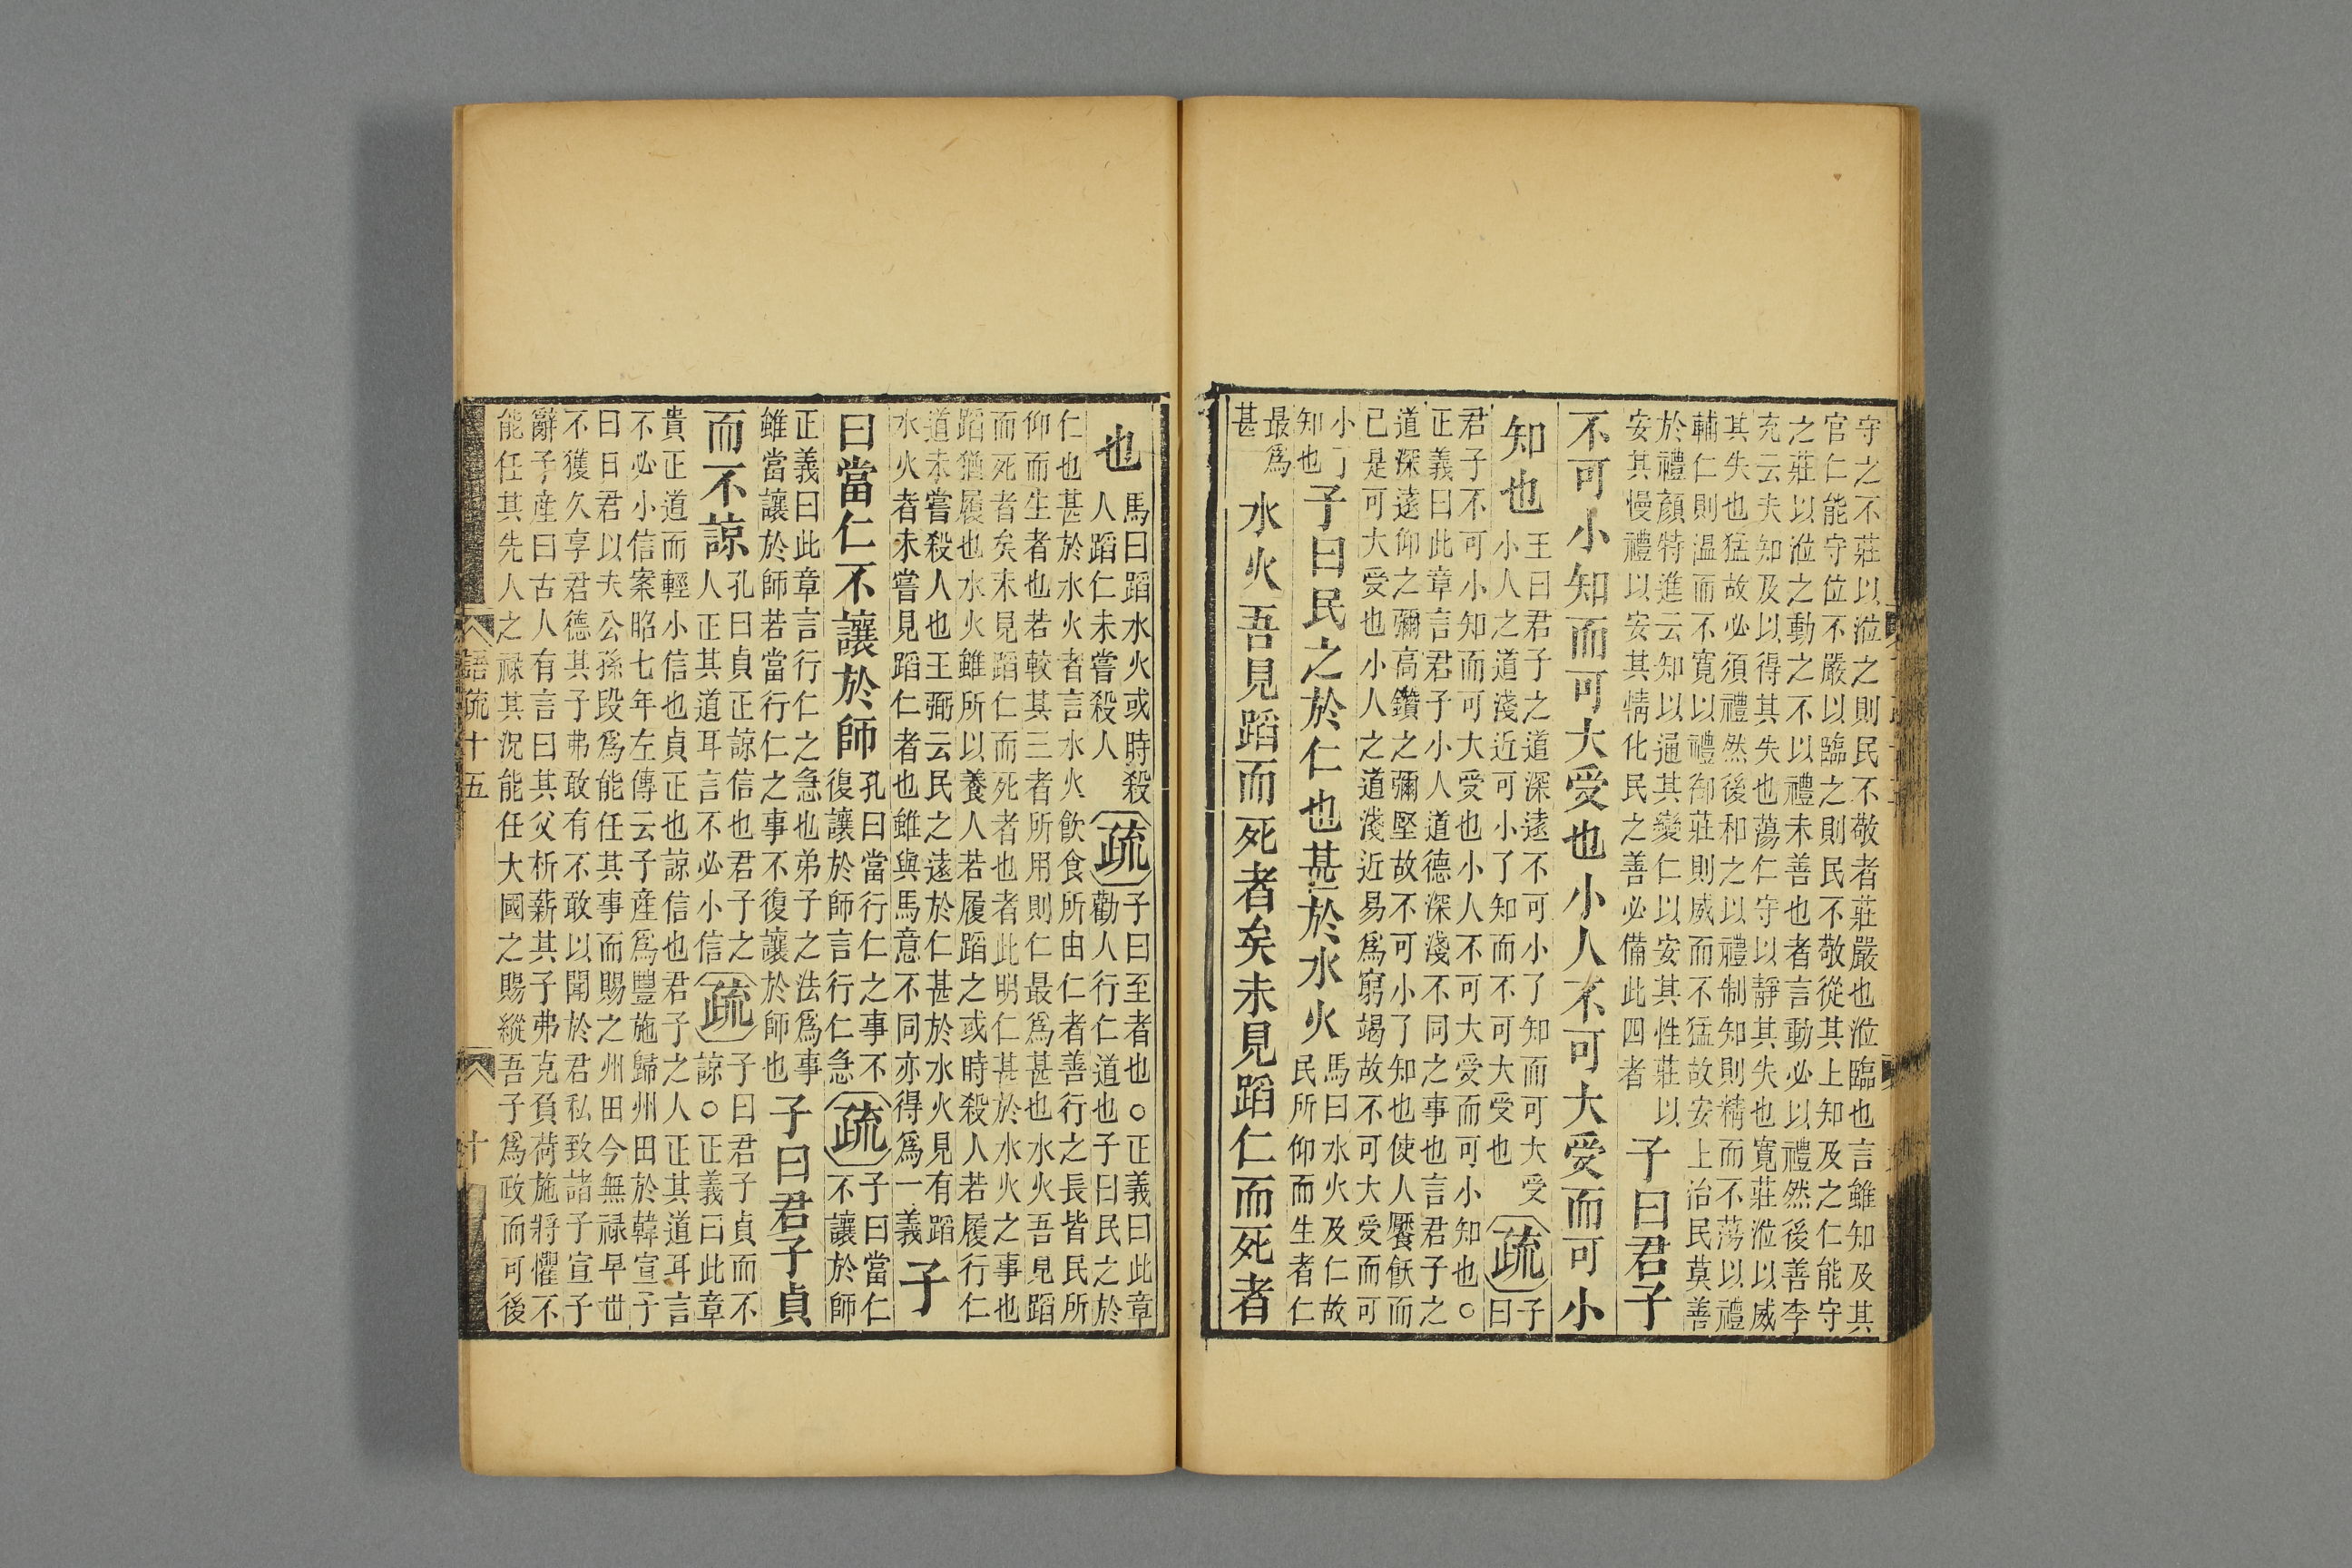 守之不莊以涖之則民不敬者莊嚴也涖臨也言雖知及其
官仁能守位不嚴以臨之則民不敬從其上知及之仁能守
之莊以涖之動之不以禮未善也者言動必以禮然後善李
充云夫知及以得其失也蕩仁守以靜其失也寬莊涖以威
其失也猛故必須禮然後和之以禮制知則精而不蕩以禮
輔仁則温而不寬以禮御莊則威而不猛故安上治民莫善
於禮顏特進云知以通其變仁以安其性莊以
安其慢禮以安其情化民之善必備此四者
子曰君子
不可小知而可大受也小人不可大受而可小
知也
王曰君子之道深遠不可小了知而可大受
小人之道淺近可小了知而不可大受也
疏
子
曰
君子不可小知而可大受也小人不可大受而可小知也○
正義曰此章言君子小人道德深淺不同之事也言君子之
道深遠仰之彌高鑽之彌堅故不可小了知也使人饜飫而
已是可大受也小人之道淺近易爲窮竭故不可大受而可
小了
知也
子曰民之於仁也甚於水火
馬曰水火及仁故
民所仰而生者仁
最爲
甚
水火吾見蹈而死者矣未見蹈仁而死者
也
馬曰蹈水火或時殺
人蹈仁未嘗殺人
疏
子曰至者也○正義曰此章
勸人行仁道也子曰民之於
仁也甚於水火者言水火飲食所由仁者善行之長皆民所
仰而生者也若較其三者所用則仁最爲甚也水火吾見蹈
而死者矣未見蹈仁而死者也者此明仁甚於水火之事也
蹈猶履也水火雖所以養人若履蹈之或時殺人若履行仁
道未嘗殺人也王弼云民之遠於仁甚於水火見有蹈
水火者未嘗見蹈仁者也雖與馬意不同亦得爲一義
子
曰當仁不讓於師
孔曰當行仁之事不
復讓於師言行仁急
疏
子曰當仁
不讓於師
正義曰此章言行仁之急也弟子之法爲事
雖當讓於師若當行仁之事不復讓於師也
子曰君子貞
而不諒
孔曰貞正諒信也君子之
人正其道耳言不必小信
疏
子曰君子貞而不
諒○正義曰此章
貴正道而輕小信也貞正也諒信也君子之人正其道耳言
不必小信案昭七年左傳云子產爲豐施歸州田於韓宣子
曰日君以夫公孫段爲能任其事而賜之州田今無祿早世
不獲久享君德其子弗敢有不敢以聞於君私致諸子宣子
辭子產曰古人有言曰其父析薪其子弗克負荷施將懼不
能任其先人之祿其況能任大國之賜縱吾子爲政而可後
語疏十五
十